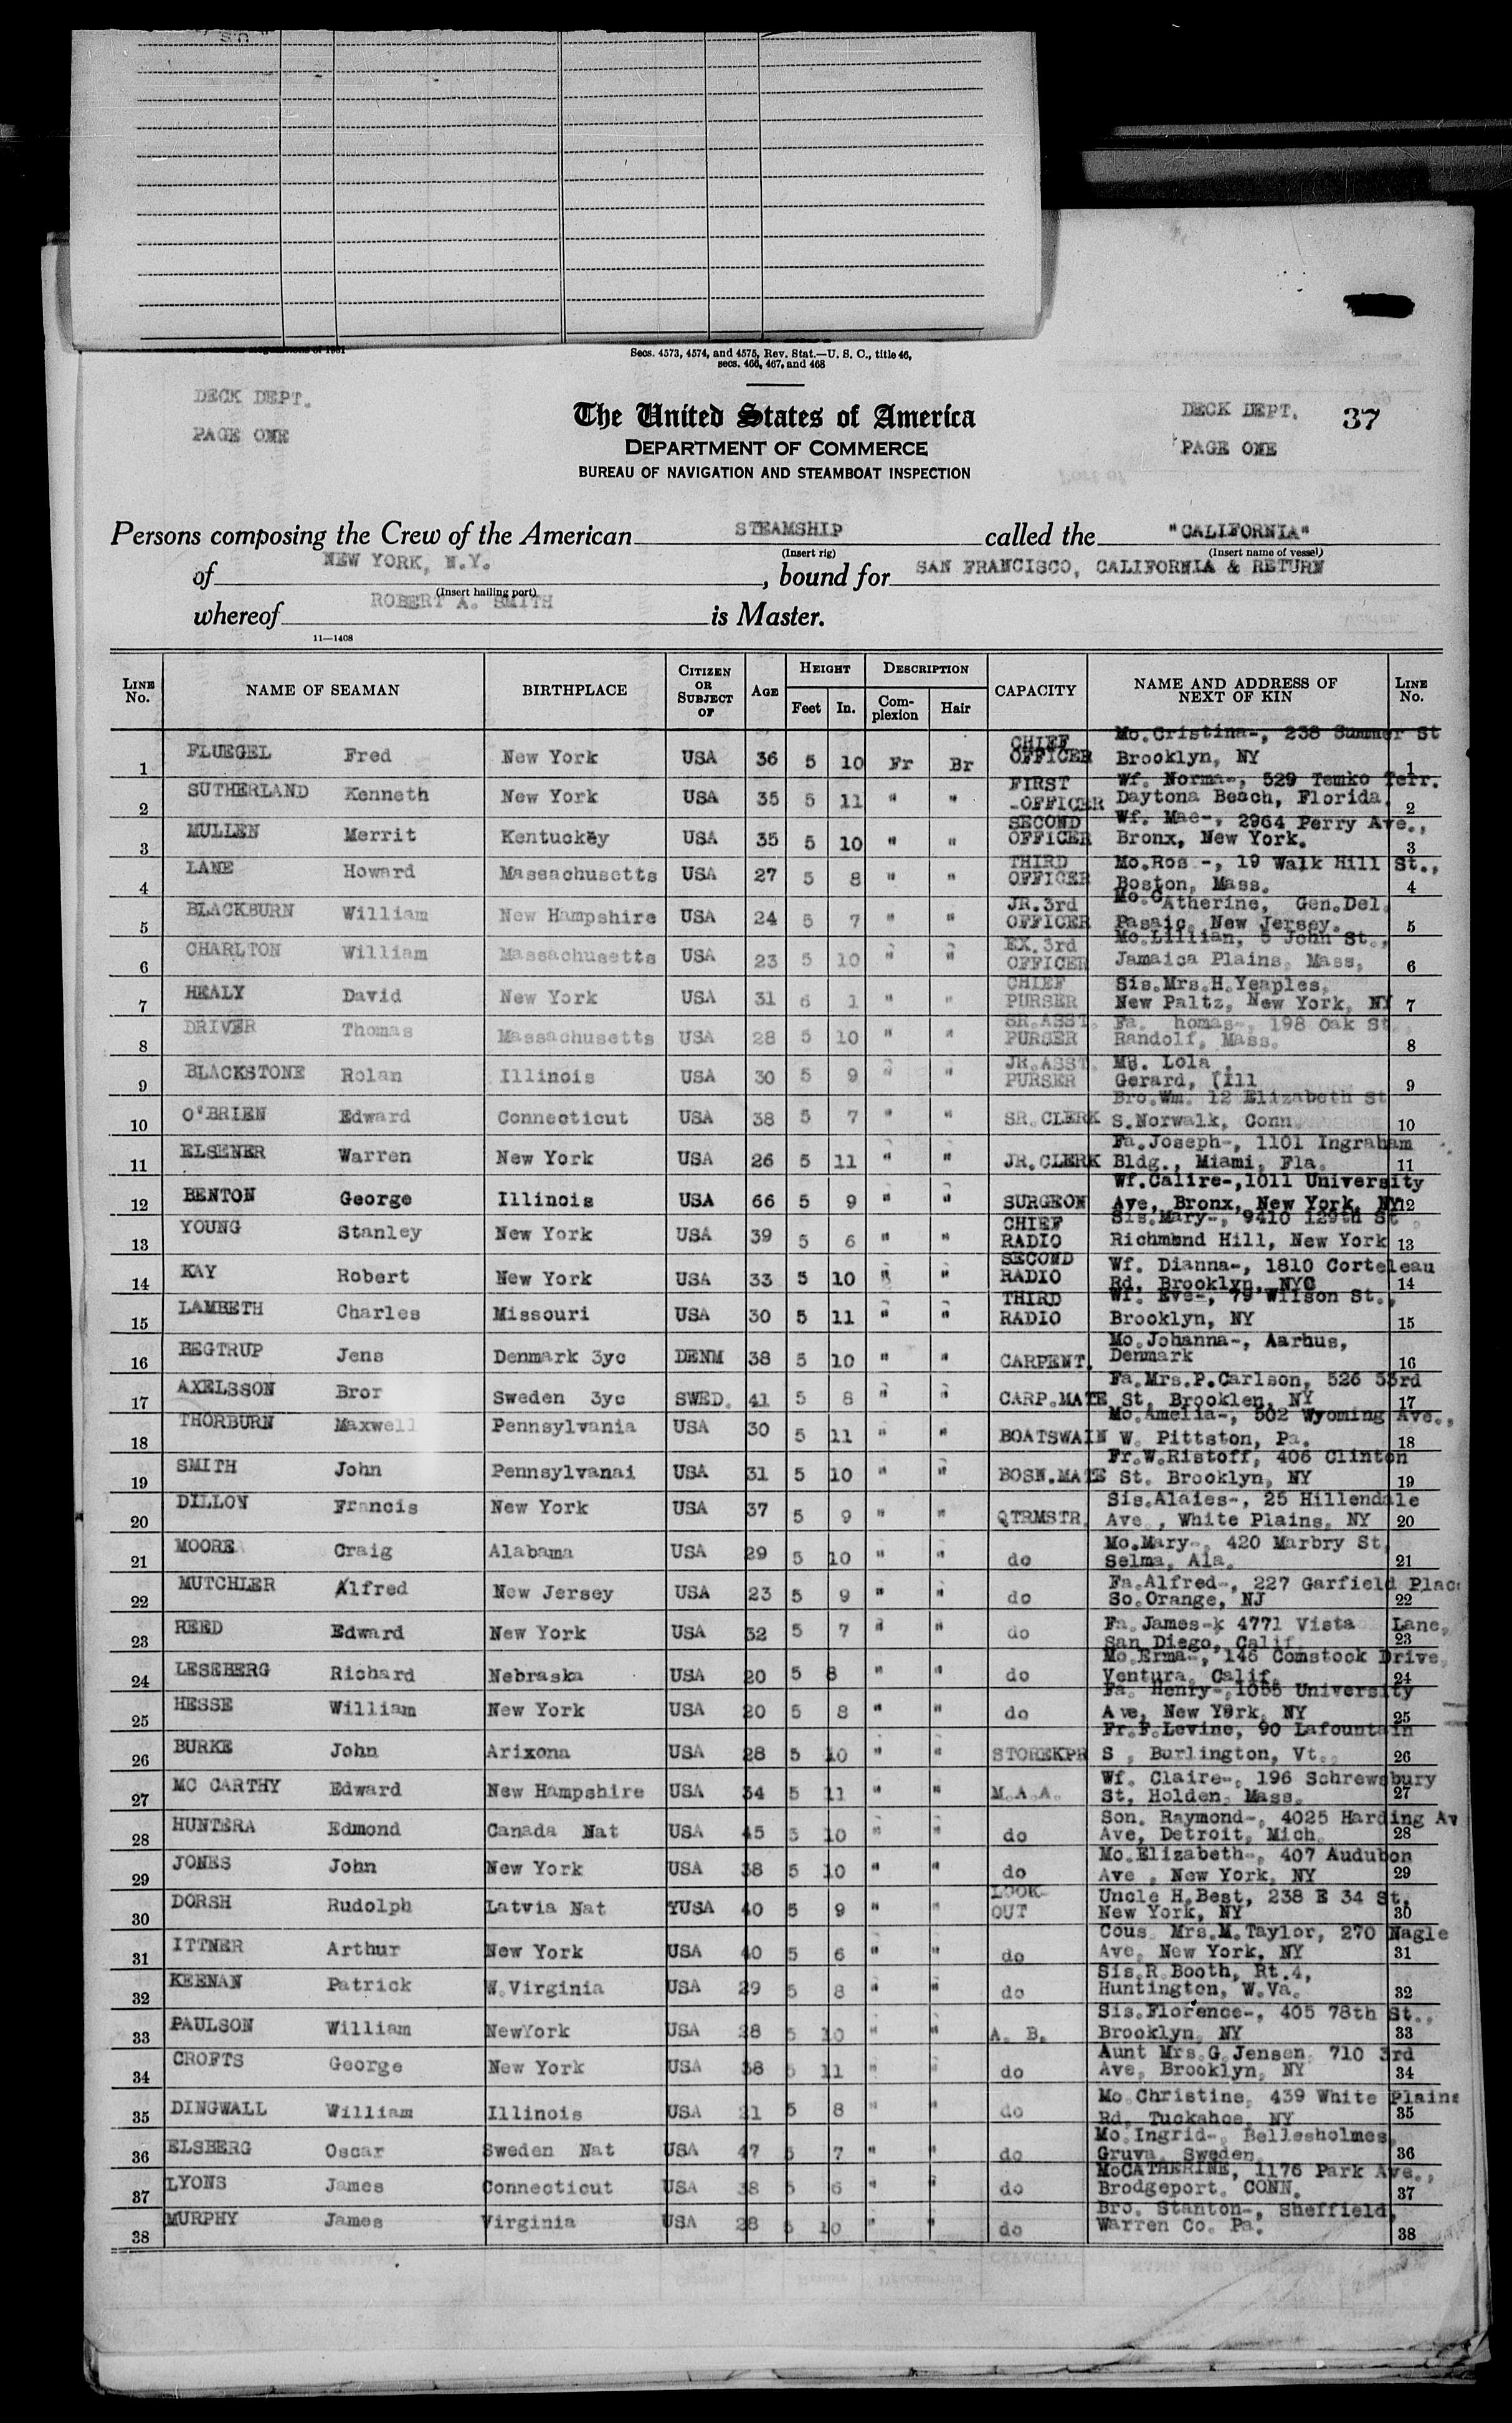 Secs. 4573, 4574, and 4575, Rev. Stat.—U. S. C., title 46,
secs. 466, 467, and 468
DECK DEPT.
PAGE ONE
The United States of America
DEPARTMENT OF COMMERCE
BUREAU OF NAVIGATION AND STEAMBOAT INSPECTION
DECK DEPT. 37
PAGE ONE
Persons composing the Crew of the American STEAMSHIP called the "CALIFORNIA"
(Insert rig) (Insert name of vessel)
of NEW YORK, N.Y., bound for SAN FRANCISCO, CALIFORNIA & RETURN
(Insert hailing port)
whereof ROBERT A. SMITH is Master.
11—1408
LINE No. NAME OF SEAMAN BIRTHPLACE CITIZEN OR SUBJECT OF AGE HEIGHT Feet In. DESCRIPTION Complexion Hair CAPACITY NAME AND ADDRESS OF NEXT OF KIN LINE No.
1 FLUEGEL Fred New York USA 36 5 10 Fr Br CHIEF OFFICER Mo.Cristina-, 238 Summer St Brooklyn, NY 1
2 SUTHERLAND Kenneth New York USA 35 5 11 " " FIRST -OFFICER Wf. Norma-, 529 Temko Terr. Daytona Beach, Florida. 2
3 MULLEN Merrit Kentuckey USA 35 5 10 " " SECOND OFFICER Wf. Mae-, 2964 Perry Ave., Bronx, New York. 3
4 LANE Howard Massachusetts USA 27 5 8 " " THIRD OFFICER Mo.Ros -, 19 Walk Hill St., Boston, Mass. 4
5 BLACKBURN William New Hampshire USA 24 5 7 " " JR.3rd OFFICER Mo.CAtherine, Gen.Del. Pasaic, New Jersey. 5
6 CHARLTON William Massachusetts USA 23 5 10 " " EX.3rd OFFICER Mo.Lillian, 5 John St., Jamaica Plains, Mass, 6
7 HEALY David New York USA 31 6 1 " " CHIEF PURSER Sis.Mrs.H.Yeaples, New Paltz, New York, NY 7
8 DRIVER Thomas Massachusetts USA 28 5 10 " " SR.ASST. PURSER Fa. homas-, 198 Oak St. Randolf, Mass. 8
9 BLACKSTONE Rolan Illinois USA 30 5 9 " " JR.ASST. PURSER Mo. Lola, Gerard, (Ill 9
10 O'BRIEN Edward Connecticut USA 38 5 7 " " SR.CLERK Bro.Wm. 12 Elizabeth St S.Norwalk, Conn. 10
11 ELSENER Warren New York USA 26 5 11 " " JR.CLERK Fa.Joseph-, 1101 Ingraham Bldg., Miami, Fla. 11
12 BENTON George Illinois USA 66 5 9 " " SURGEON Wf.Calire-,1011 University Ave, Bronx, New York, NY 12
13 YOUNG Stanley New York USA 39 5 6 " " CHIEF RADIO Sis.Mary-, 9410 129th St Richmond Hill, New York 13
14 KAY Robert New York USA 33 5 10 " " SECOND RADIO Wf. Dianna-, 1810 Corteleau Rd, Brooklyn, NYC 14
15 LAMBETH Charles Missouri USA 30 5 11 " " THIRD RADIO Wf. Eve-, 79 Wilson St., Brooklyn, NY 15
16 BEGTRUP Jens Denmark 3yc DENM 38 5 10 " " CARPENT. Mo.Johanna-, Aarhus, Denmark 16
17 AXELSSON Bror Sweden 3yc SWED. 41 5 8 " " CARP.MATE Fa.Mrs.P.Carlson, 526 53rd St, Brooklen, NY 17
18 THORBURN Maxwell Pennsylvania USA 30 5 11 " " BOATSWAIN Mo.Amelia-, 502 Wyoming Ave., W. Pittston, Pa. 18
19 SMITH John Pennsylvanai USA 31 5 10 " " BOSN.MATE Fr.W.Ristoff, 406 Clinton St. Brooklyn, NY 19
20 DILLON Francis New York USA 37 5 9 " " QTRMSTR. Sis.Alaies-, 25 Hillendale Ave , White Plains, NY 20
21 MOORE Craig Alabama USA 29 5 10 " " do Mo.Mary-, 420 Marbry St, Selma, Ala. 21
22 MUTCHLER Alfred New Jersey USA 23 5 9 " " do Fa.Alfred-, 227 Garfield Plac So.Orange, NJ 22
23 REED Edward New York USA 32 5 7 " " do Fa.James-k 4771 Vista Lane, San Diego, Calif. 23
24 LESEBERG Richard Nebraska USA 20 5 8 " " do Mo.Erma-, 146 Comstock Drive, Ventura, Calif. 24
25 HESSE William New York USA 20 5 8 " " do Fa. Henry-,1055 University Ave, New York, NY 25
26 BURKE John Arixona USA 28 5 10 " " STOREKPR Fr.F.Levine, 90 Lafountain S , Burlington, Vt. 26
27 MC CARTHY Edward New Hampshire USA 34 5 11 " " M.A.A. Wf. Claire-, 196 Schrewsbury St, Holden, Mass. 27
28 HUNTERA Edmond Canada Nat USA 45 5 10 " " do Son. Raymond-, 4025 Harding Av Ave, Detroit, Mich. 28
29 JONES John New York USA 38 5 10 " " do Mo.Elizabeth-, 407 Audubon Ave , New York, NY 29
30 DORSH Rudolph Latvia Nat YUSA 40 5 9 " " LOOK- OUT Uncle H.Best, 238 E 34 St, New York, NY 30
31 ITTNER Arthur New York USA 40 5 6 " " do Cous. Mrs.M.Taylor, 270 Nagle Ave, New York, NY 31
32 KEENAN Patrick W.Virginia USA 29 5 8 " " do Sis.R.Booth, Rt.4, Huntington, W.Va. 32
33 PAULSON William NewYork USA 28 5 10 " " A. B. Sis.Florence-, 405 78th St., Brooklyn, NY 33
34 CROFTS George New York USA 38 5 11 " " do Aunt Mrs.G.Jensen, 710 3rd Ave, Brooklyn, NY 34
35 DINGWALL William Illinois USA 21 5 8 " " do Mo.Christine, 439 White Plains Rd, Tuckahoe, NY 35
36 ELSBERG Oscar Sweden Nat USA 47 5 7 " " do Mo.Ingrid-, Bellesholmes, Gruva, Sweden 36
37 LYONS James Connecticut USA 38 5 6 " " do MoCATHERINE, 1176 Park Ave., Brodgeport, CONN. 37
38 MURPHY James Virginia USA 28 5 10 " " do Bro. Stanton-, Sheffield, Warren Co. Pa. 38